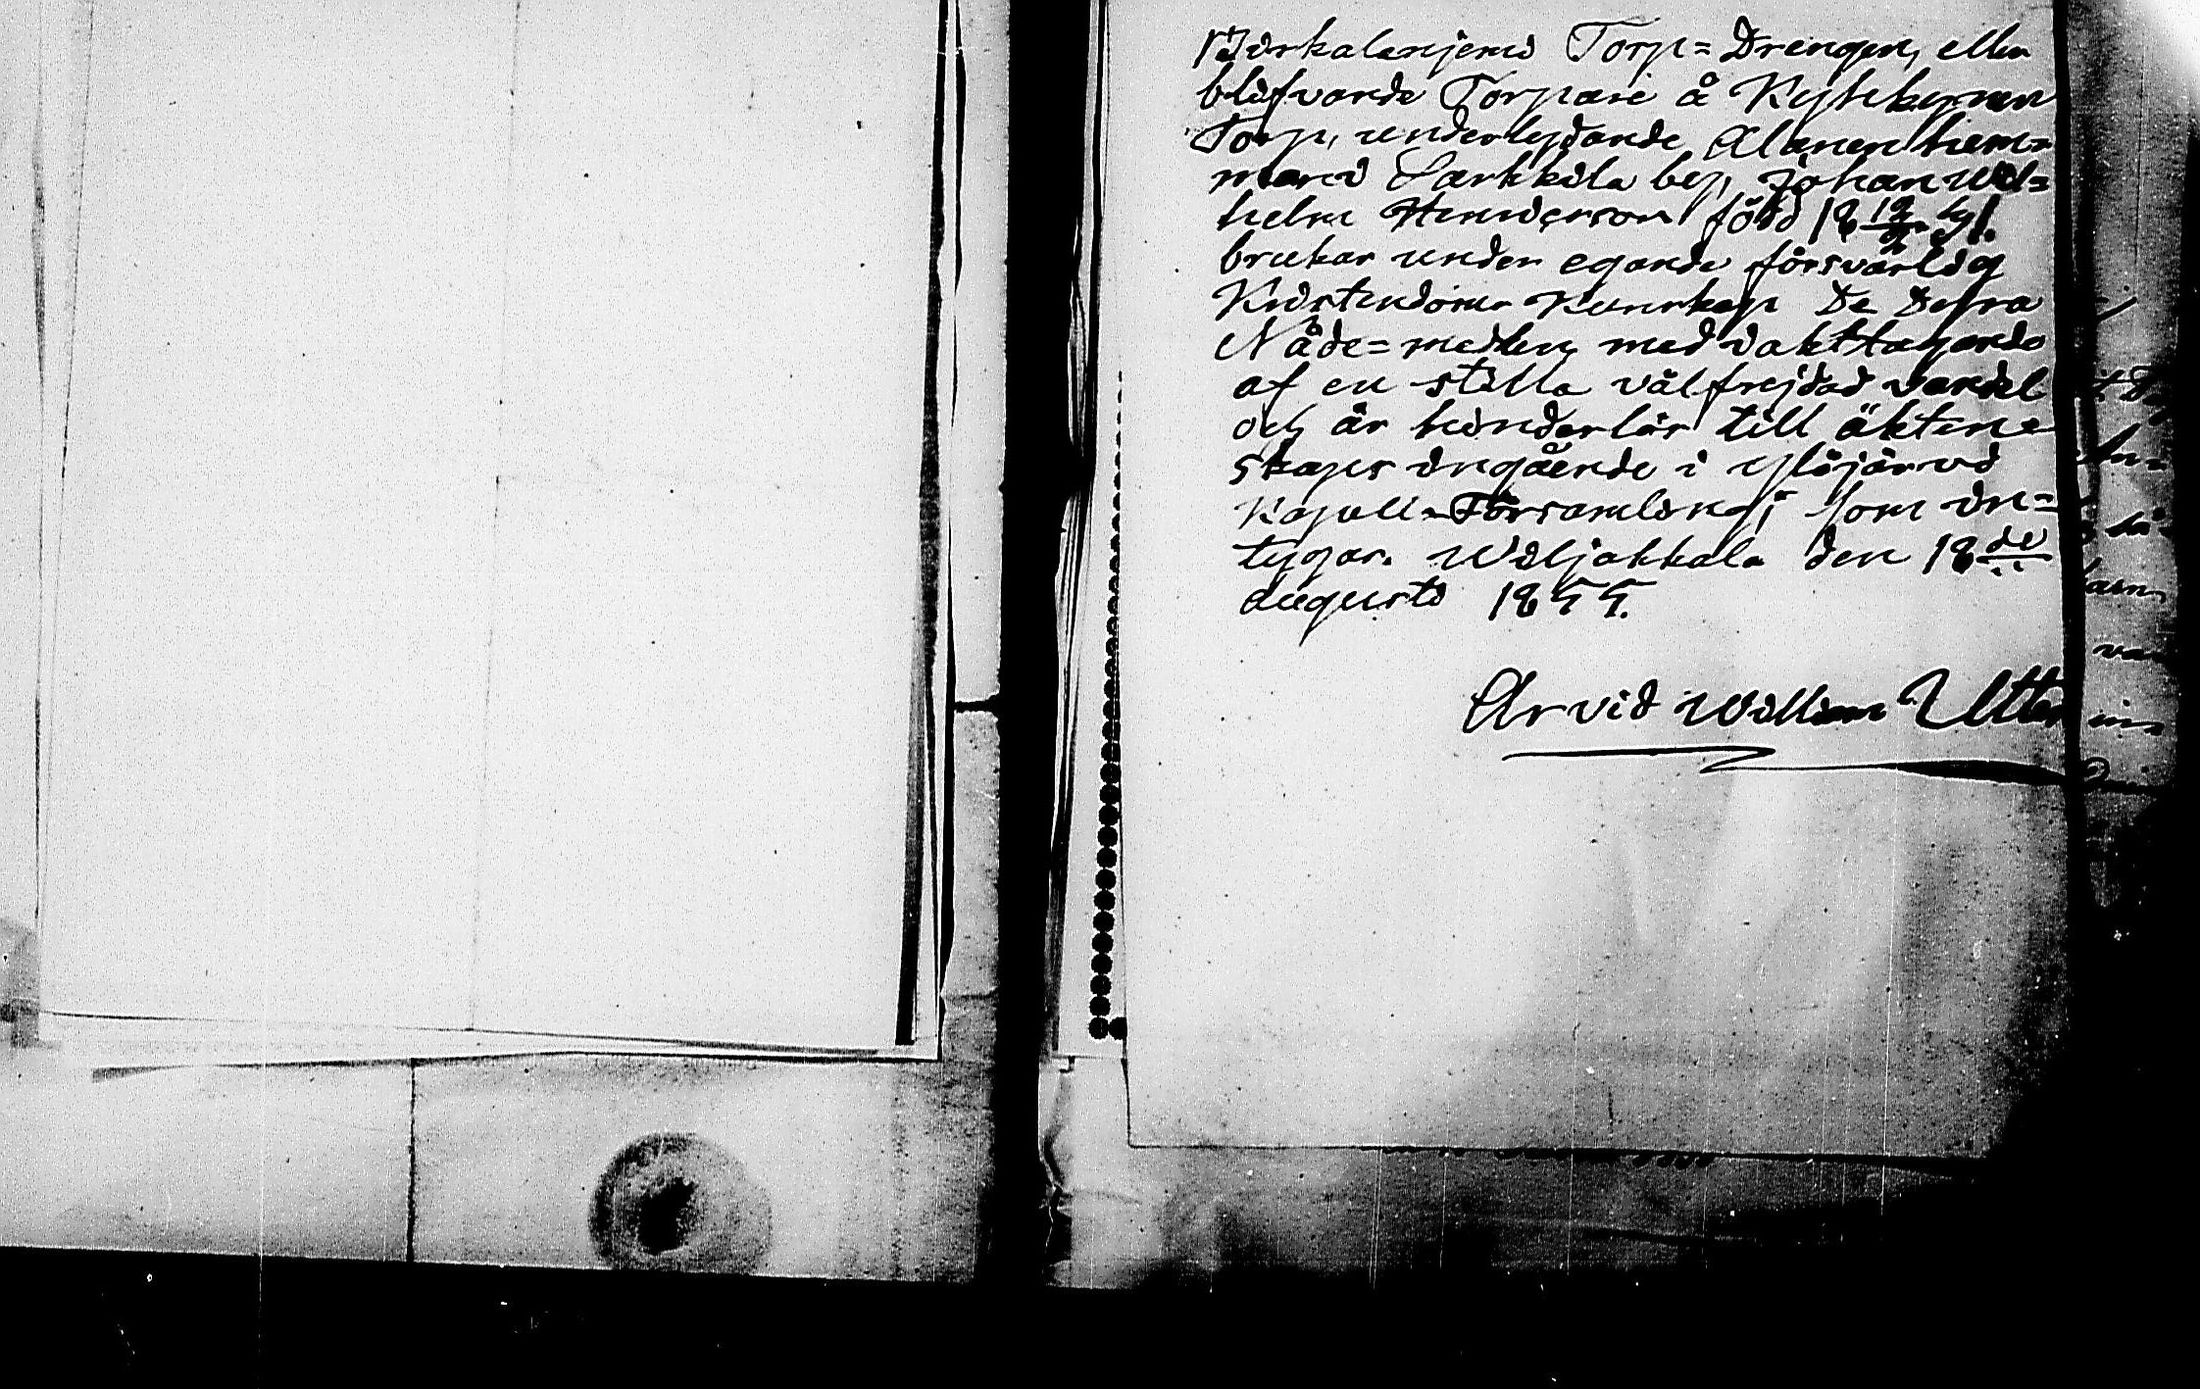 Birkalaniemi Torp=Drengen, eller
blifvande Torpare å Kytekynen
Torp, underlydande Alanen hem=
man i Sarkkila by, Johan Wil=
helm Henricsson född 18
brukar under egande försvarlig
Kristendoms Kunskap De Dyra
Nåde=medlen med iakttagande
af en stilla välfrejdad vandel
och är hinderlös till äkten=
skaps ingående i Ylöjärvi
Kapell=Församling; som in=
tygar. Wiljakkala den 18de
Augusti 1855.
Arvid William Utter